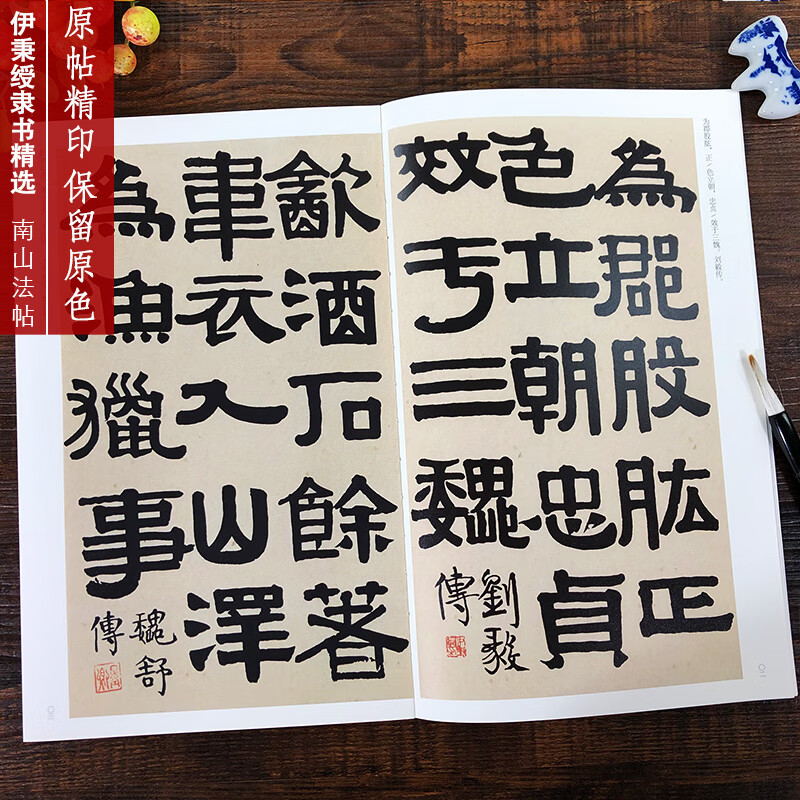 原帖精印 保留原色
伊秉绶隶书精选 南山法帖
为郡股肱,正/色立朝,忠贞/效于三魏。刘毅传。
為郡股肱正
色立朝忠貞
效于三魏
劉毅
傳
㱃酒石餘著
韋衣入山澤
為漁獵事
魏舒
傳